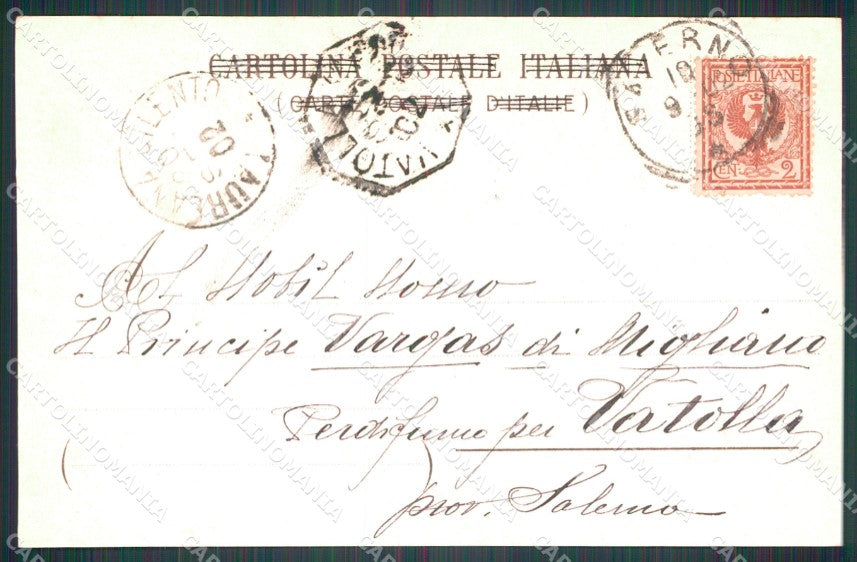 CARTOLINA POSTALE ITALIANA
(CARTE POSTALE D'ITALIE)
SALERNO
10
POSTE ITALIANE
CEN. 2
LAUREANA CILENTO
02
VATOLLA
02
Al Nobil Uomo
Il Principe Vargas di Migliano
Perdifumo per Vatolla
prov. Salerno
CARTOLINOMANIA